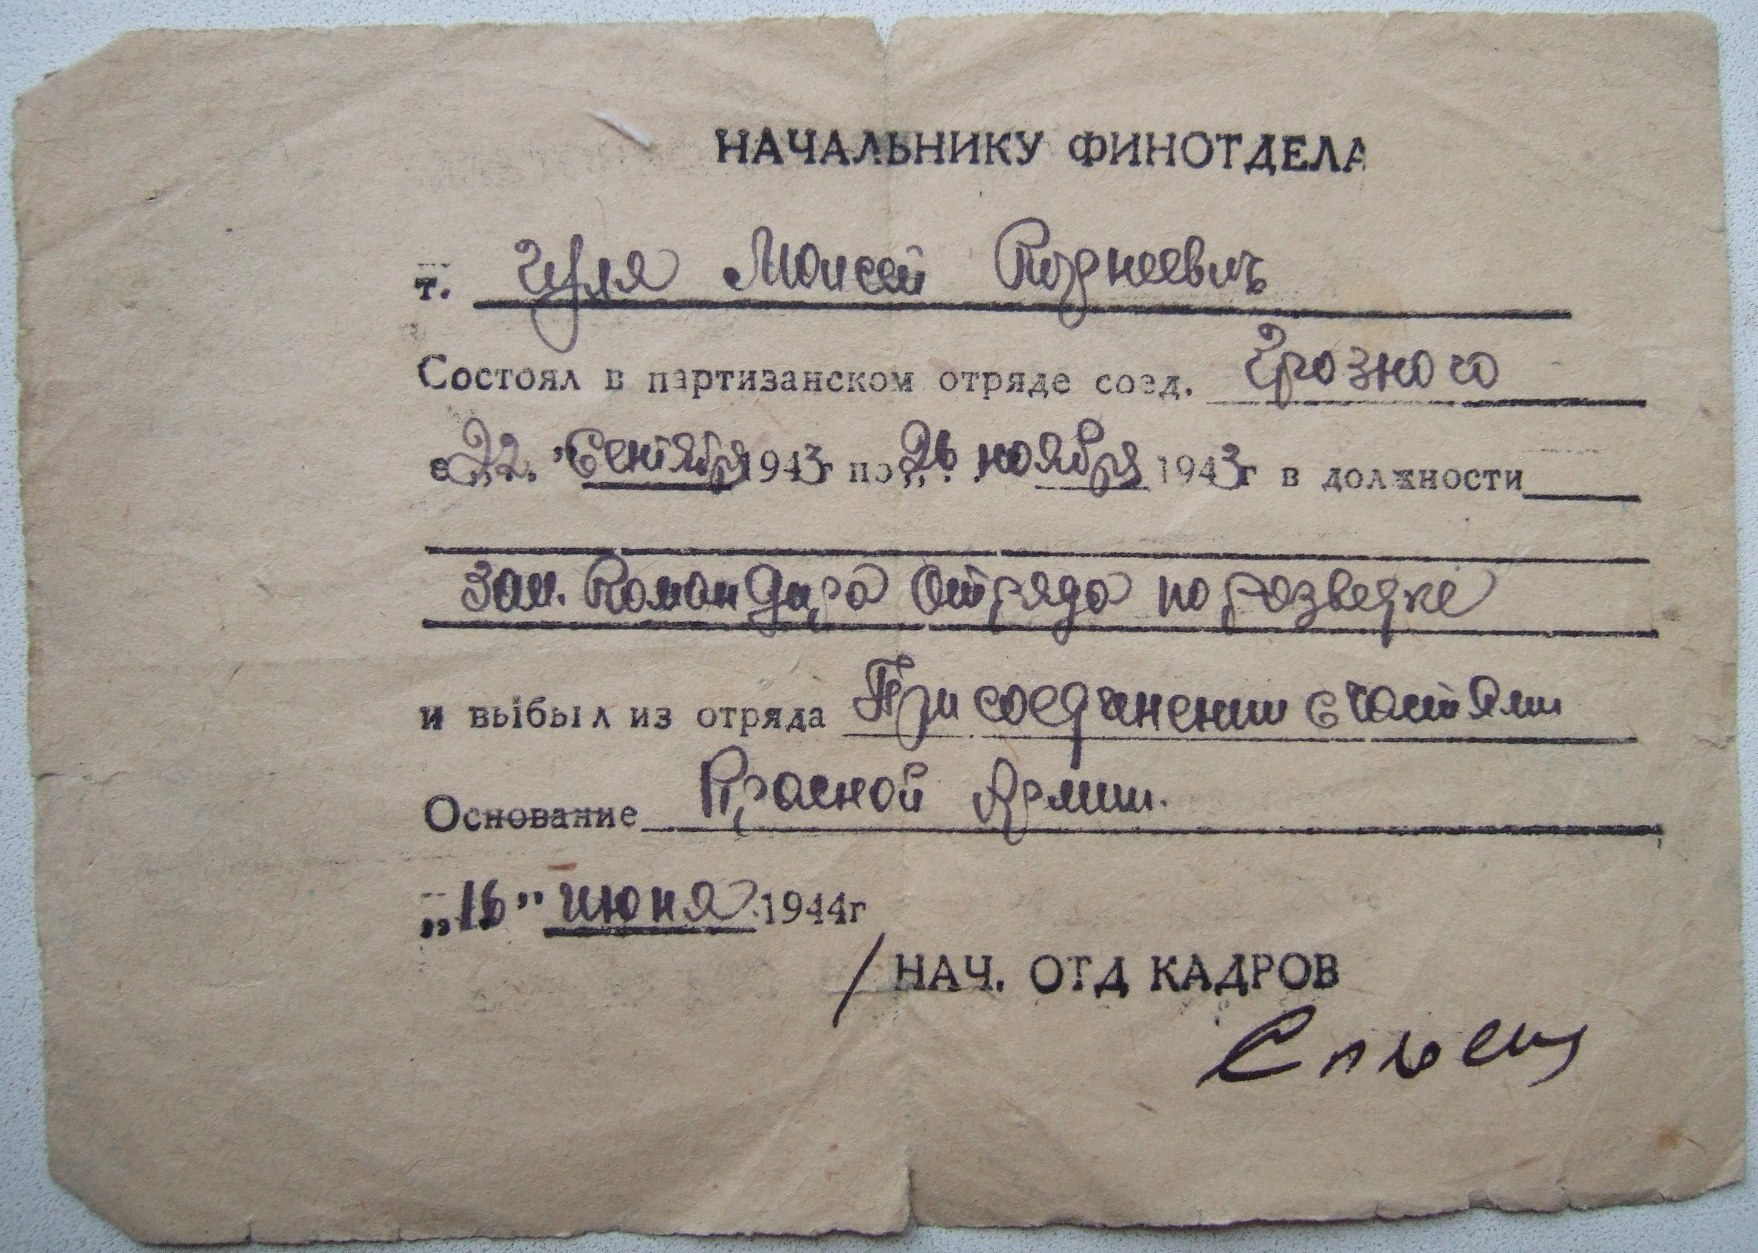 НАЧАЛЬНИКУ ФИНОТДЕЛА
т. Гуля Моисей Корнеевич
Состоял в партизанском отряде соед. Грозного
с „22" Сентября 1943г по „26" ноября 1943г в должности
Зам. Командира Отряда по разведке
и выбыл из отряда При соединении с частями
Основание Красной Армии.
„16" июня 1944г
/ НАЧ. ОТД КАДРОВ